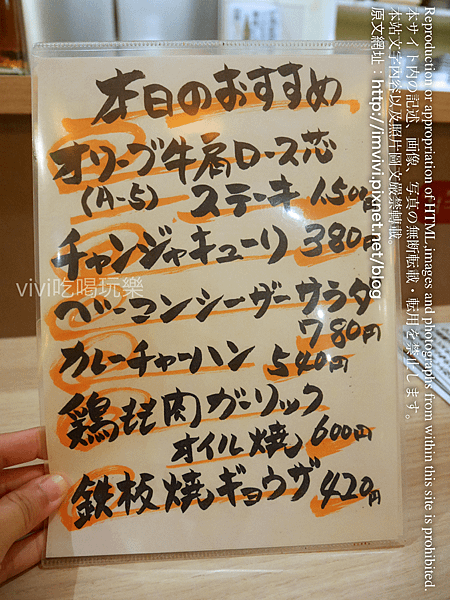 本日のおすすめ
オリーブ牛肩ロース芯
(A-5) ステーキ 1,500円
チャンジャキューリ 380円
ベーコンシーザーサラダ
780円
カレーチャーハン 540円
鶏もも肉ガーリック
オイル焼 600円
鉄板焼ギョウザ 420円
vivi吃喝玩樂
Reproduction or appropriation of HTML, images and photographs from within this site is prohibited.
本サイト内の記述、画像、写真の無断転載・転用を禁止します。
本站文字內容以及照片圖文嚴禁轉載。
原文網址：http://imvivi.pixnet.net/blog